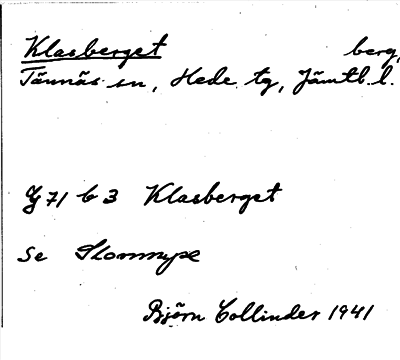 Klasberget berg,
Tännäs sn, Hede tg, Jämtl. l.
G 71 b 3 Klasberget
Se
Björn Collinder 1941